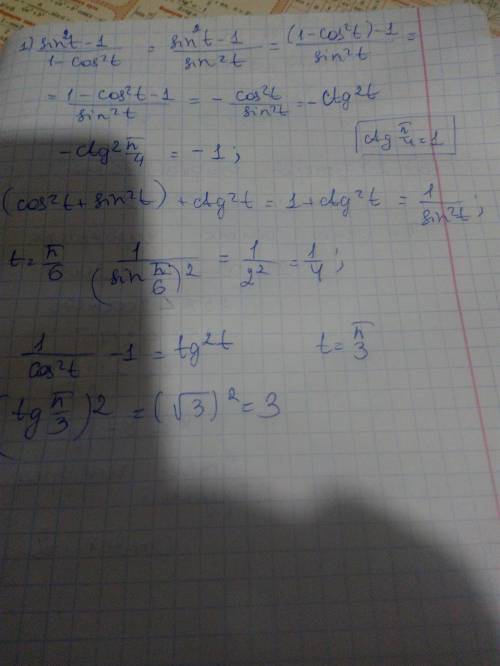 1) (sin²t-1)/(1-cos²t) = (sin²t-1)/(sin²t) = ((1-cos²t)-1)/(sin²t) =
= (1-cos²t-1)/(sin²t) = - (cos²t)/(sin²t) = -ctg²t
-ctg² π/4 = -1; ctg π/4 = 1
(cos²t + sin²t) + ctg²t = 1 + ctg²t = 1/(sin²t);
t = π/6 1/(sin π/6)² = 1/2² = 1/4;
1/(cos²t) - 1 = tg²t t = π/3
(tg π/3)² = (√3)² = 3